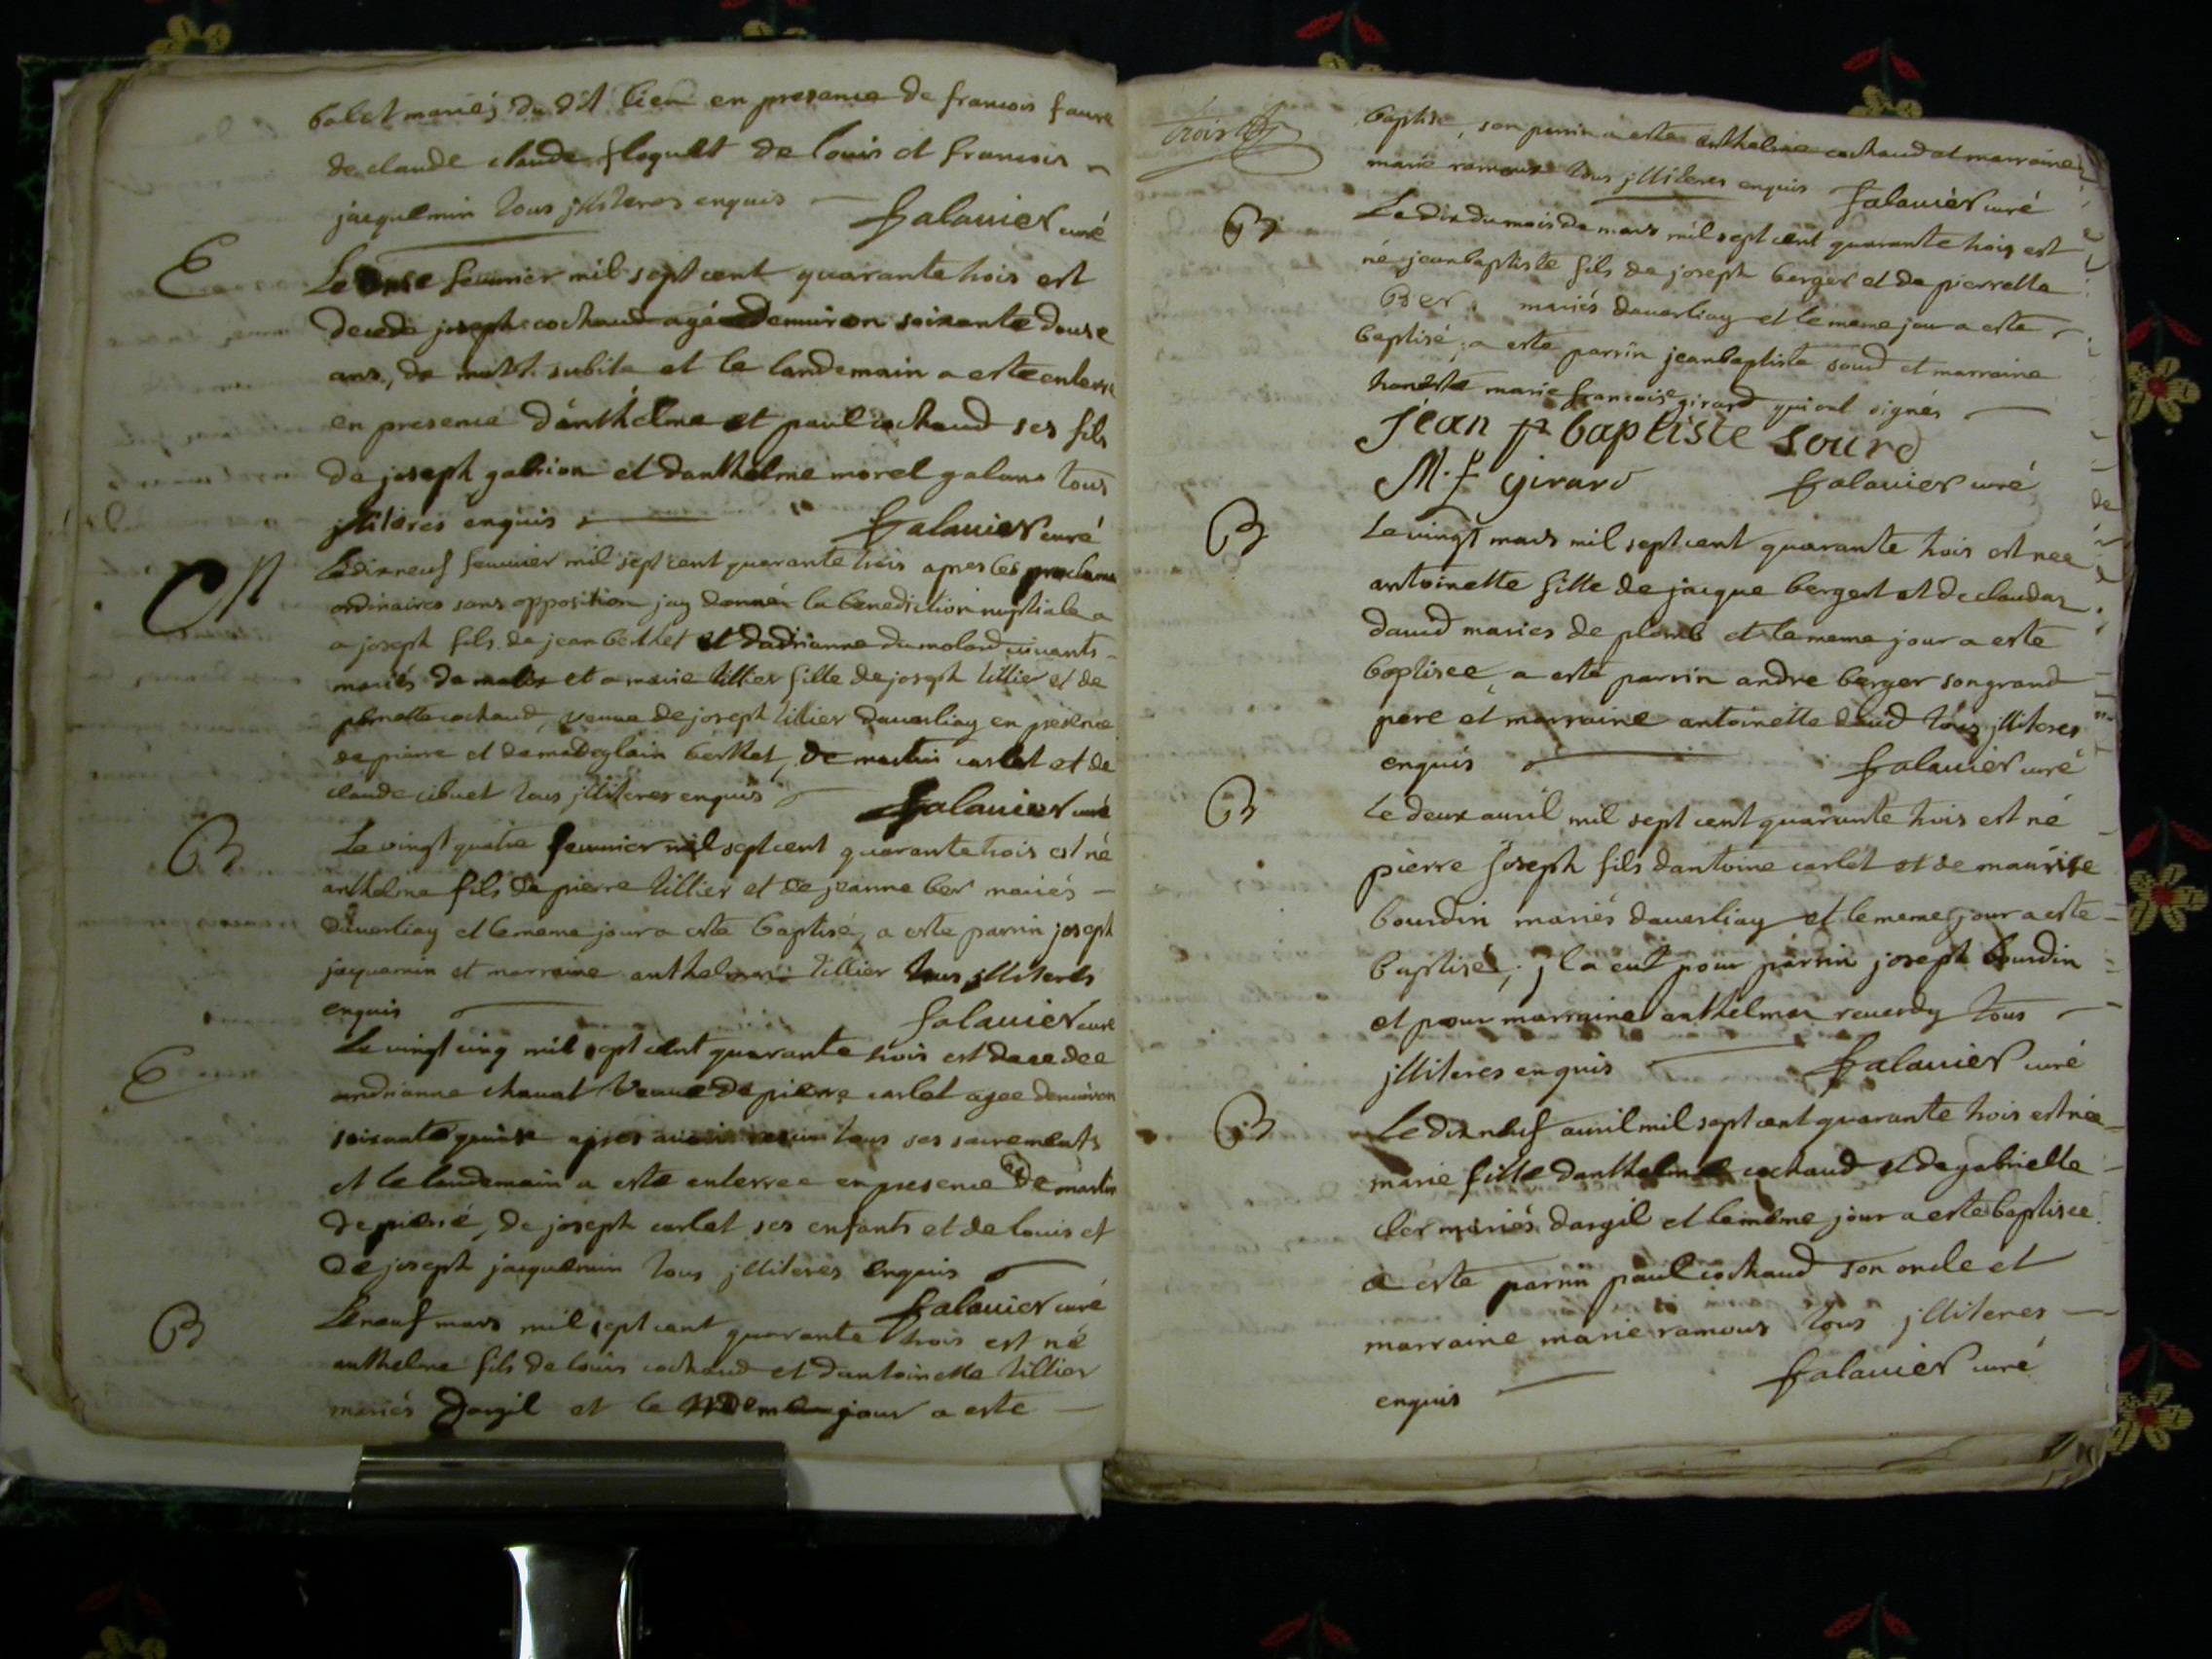 balet mariés du dit lieu en presence de francois faure
de claude claude floquet de louis et francois
jacquemin tous jlliteres enquis
Falavier curé
E
Le onse feuurier mil sept cent quarante trois est
decede joseph cochaud agé denuiron soixante douse
ans, de mort subite et le landemain a este enterré
en presence danthelme et paul cochaud ses fils
de joseph gabrion et danthelme morel galans tous
jlliteres enquis
Falavier curé
M
Le dix neuf feuurier mil sept cent quarante trois apres les proclama
ordinaires sans opposition jay donné la benediction nuptiale a
a joseph fils de jean berthet et dadrianne dumolard viuants
mariés de et a marie tillier fille de joseph tillier et de
pernette cochaud, veuue de joseph tillier dauerliay en présence
de pierre et de berthet, de martin carlet et de
claude cibuet tous jlliteres enquis
Falavier curé
B
Le vingt quatre feuurier mil sept cent quarante trois est né
anthelme fils de pierre tillier et de jeanne ber mariés
dauerliay et le meme jour a este baptisé, a este parrin joseph
jaquemin et marraine tillier tous jlliteres
enquis
Falavier curé
E
Le vingt cinq mil sept cent quarante trois est decedee
andrianne chauat veuue de pierre carlet agee denuiron
soixante quinse apres auoir receu tous ses sacrements
et le landemain a este enterree en presence de martin
de pierre, de joseph carlet ses enfants et de louis et
de joseph jacquemin tous jlliteres enquis
Falavier curé
B
Le neuf mars mil sept cent quarante trois est né
anthelme fils de louis cochaud et dantoinette tillier
mariés dargil et le meme jour a este
trois
baptisé, son parrin a este anthelme cochaud et marraine
marie ramoux tous jlliteres enquis
Falavier curé
B
Le dix du mois de mars mil sept cent quarante trois est
né jean baptiste fils de joseph berger et de pierrette
Ber mariés dauerliay et le meme jour a este
baptisé; a este parrin jean baptiste sourd et marraine
honeste marie francoise girard qui ont signés
jean baptiste sourd
M. f girard
Falavier curé
B
Le vingt mars mil sept cent quarante trois est nee
antoinette fille de jacque berger et de claudaz
daud maries de plomb et le meme jour a este
baptisee, a este parrin andre berger son grand
pere et marraine antoinette daud tous jlliteres
enquis
Falavier curé
B
Le deux auril mil sept cent quarante trois est né
pierre joseph fils dantoine carlet et de maurise
bourdin mariés dauerliay et le meme jour a este
baptisé; jl a eut pour parrin joseph bourdin
et pour marraine anthelmaz reuerdy tous
jlliteres enquis
Falavier curé
B
Le dix neuf auril mil sept cent quarante trois est née
marie fille danthelme cochaud et de gabrielle
ber mariés dargil et le même jour a este baptisee
a este parrin paul cochaud son oncle et
marraine marie ramoux tous jlliteres
enquis
Falavier curé